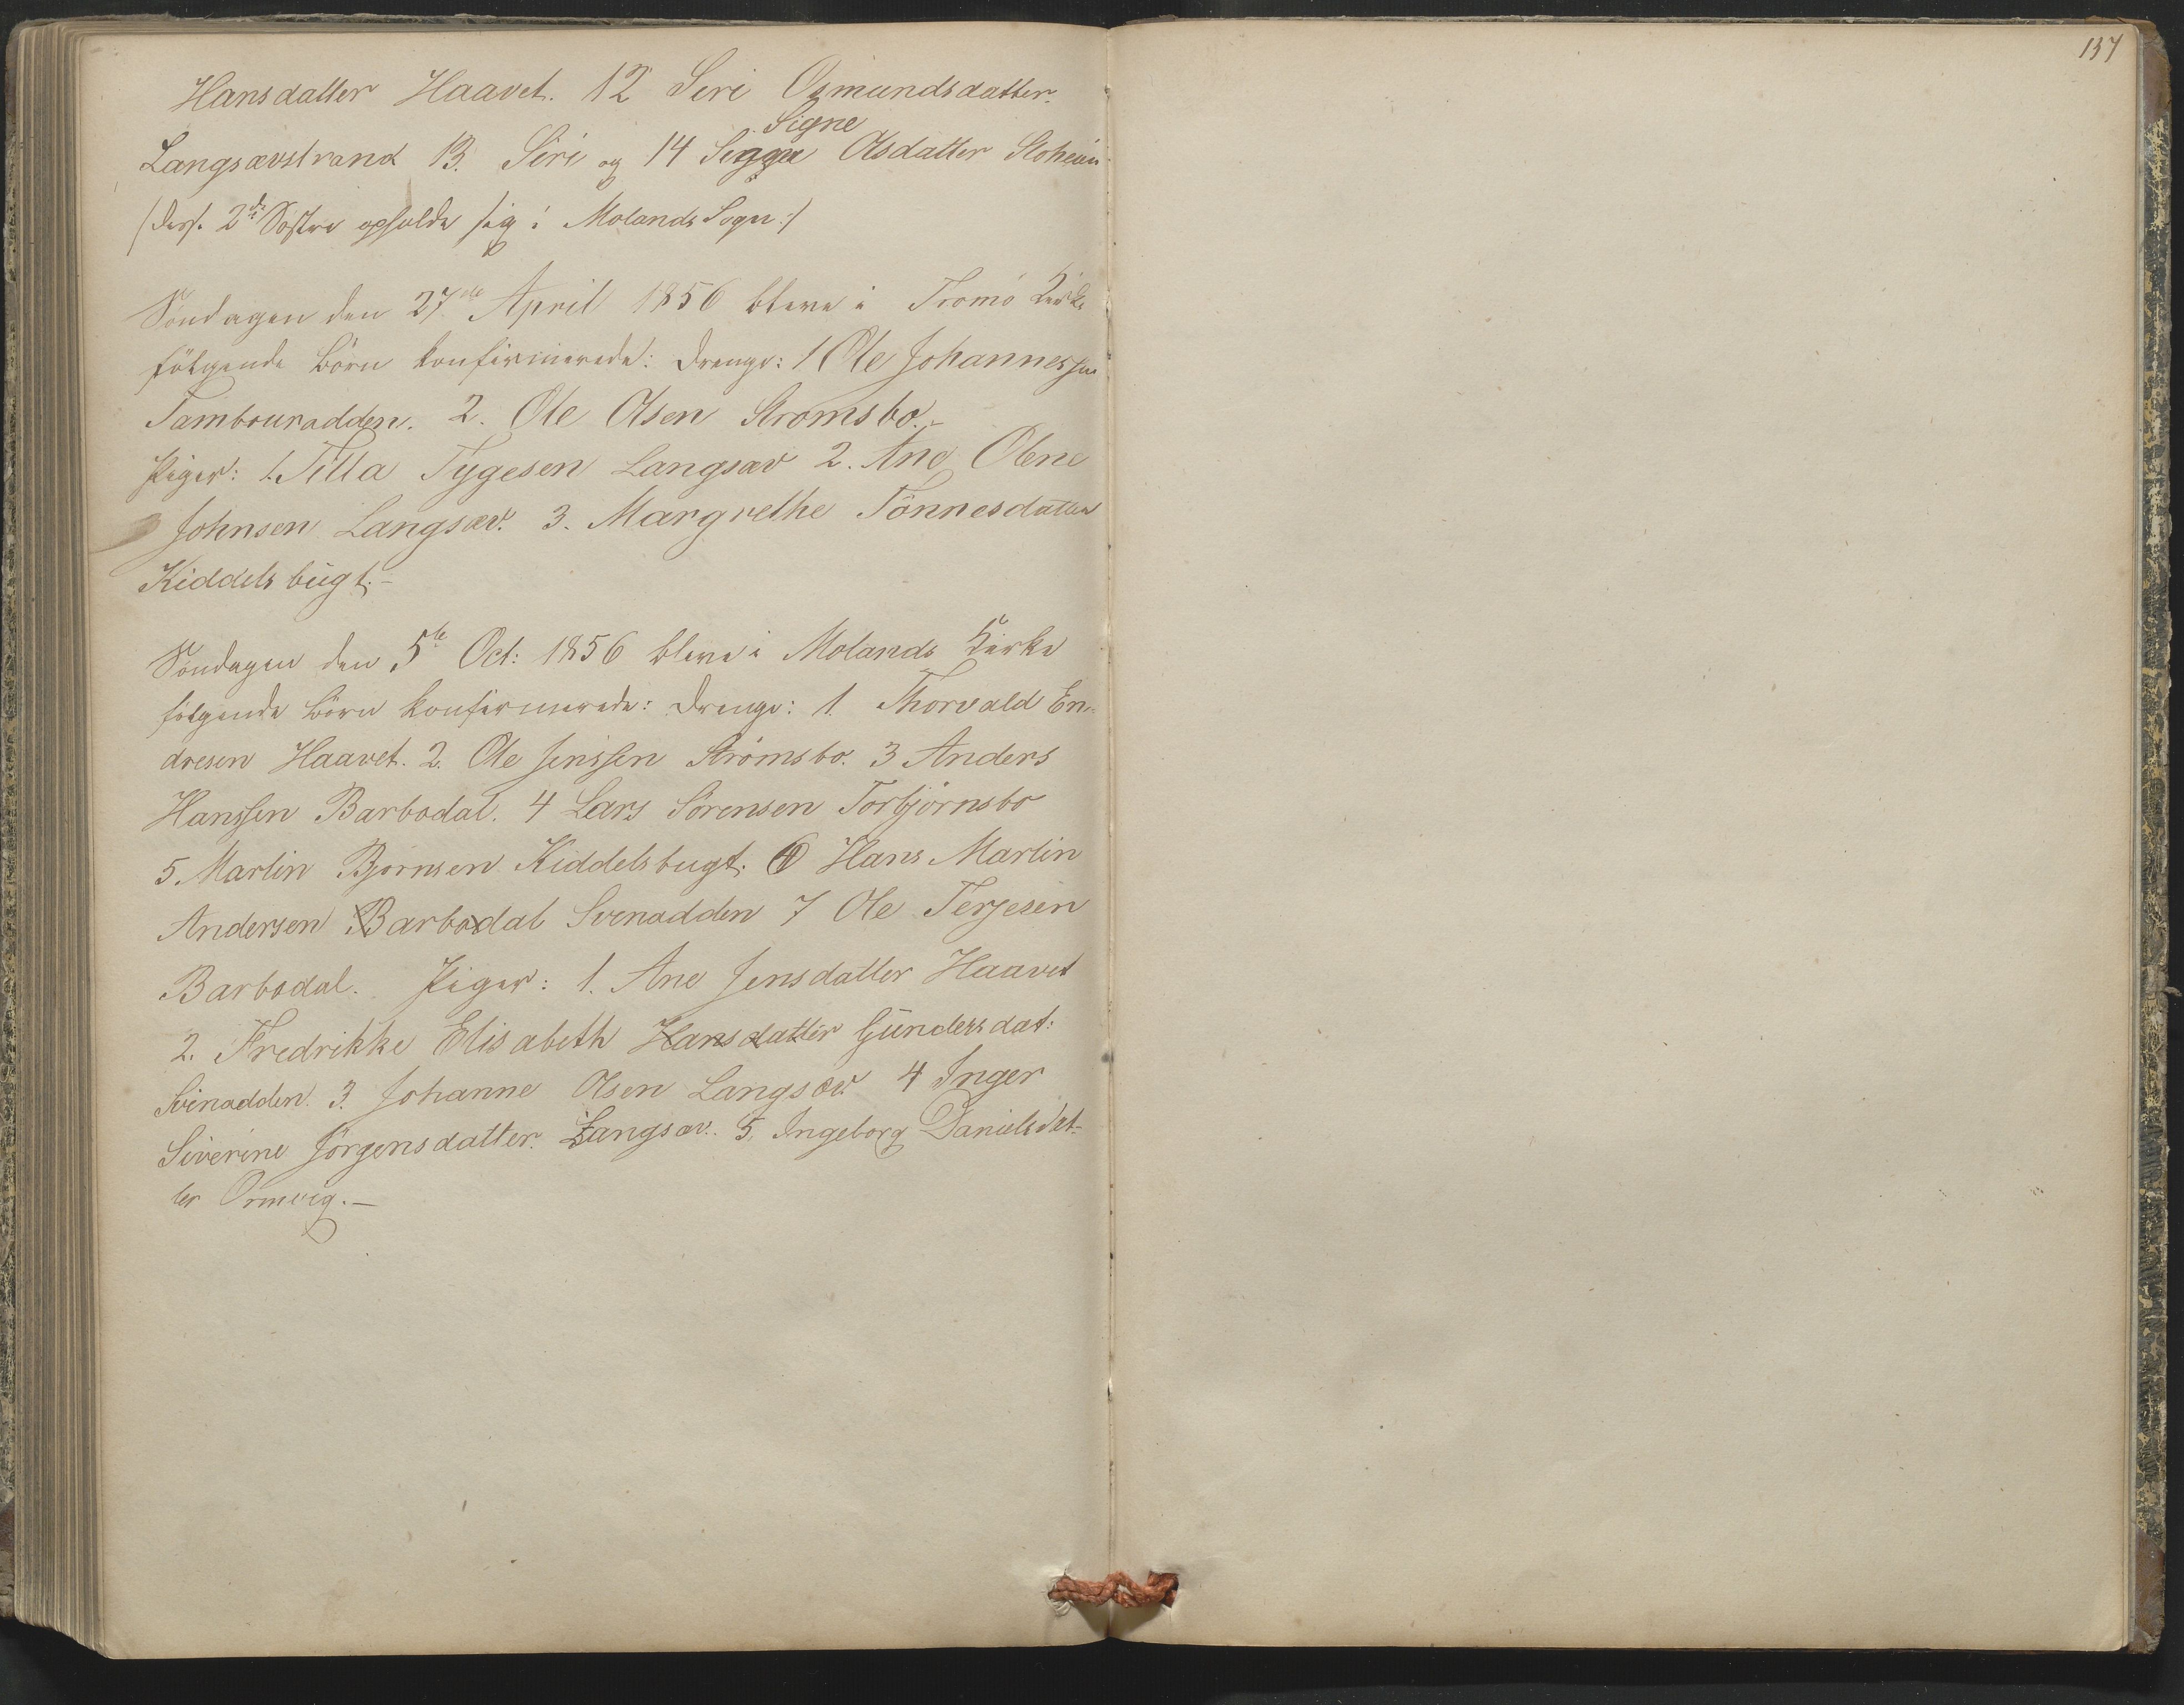 137
Hansdatter Haavet. 12 Siri Osmundsdatter
Signe
Langsævstrand 13. Siri og 14 Olsdatter
(diss. 2de Søstre opholde sig i Molands Sogn:/
Søndagen den 27de April 1856 bleve i Tromö Kirke
følgende Börn konfirmerede: Drenge: 1 Ole Johannessen
Tambouradden. 2. Ole Olsen Stromsbo.-
Piger: 1. Tilla Tygesen Langsæv 2. Ane Olene
Johnsen Langsæv. 3. Margrethe Tönnesdatter
Kiddelsbugt.-
Søndagen den 5te Oct: 1856 bleve i Molands Kirke
følgende Börn konfirmerede: Drenge: 1. Thorvald En-
dresen Haavet. 2. Ole Jenssen Strömsbo. 3 Anders
Hanssen Barbodal. 4 Lars Sörensen Torbjörnsbo
5. Martin Bjørnsen Kiddelsbugt. 6 Hans Martin
Andersen Barbodal Svinadden 7 Ole Terjesen
Barbodal. Piger: 1. Ane Jensdatter Haavet
2. Fredrikke Elisabeth Hansdatter Gundersdat:
Svinodden. 3. Johanne Olsen Langsæv. 4 Inger
Siverine Jörgensdatter. Langsæv. 5. Ingeborg Danielsdat-
ter Ormvig.-